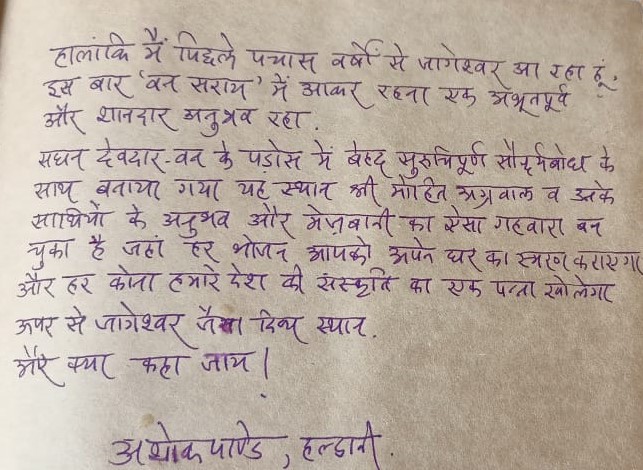 हालांकि मैं पिछले पचास वर्षों से जागेश्वर आ रहा हूं,
इस बार 'वन सराय' में आकर रहना एक अभूतपूर्व
और शानदार अनुभव रहा.
सघन देवदार-वन के पड़ोस में बेहद सुरुचिपूर्ण सौंदर्यबोध के
साथ बनाया गया यह स्थान श्री मोहित अग्रवाल व उनके
साथियों के अनुभव और मेज़बानी का ऐसा गहवारा बन
चुका है जहां हर भोजन आपको अपने घर का स्मरण कराएगा
और हर कोना हमारे देश की संस्कृति का एक पन्ना खोलेगा
ऊपर से जागेश्वर जैसा दिव्य स्थान.
और क्या कहा जाय!
अशोक पाण्डे, हल्द्वानी.